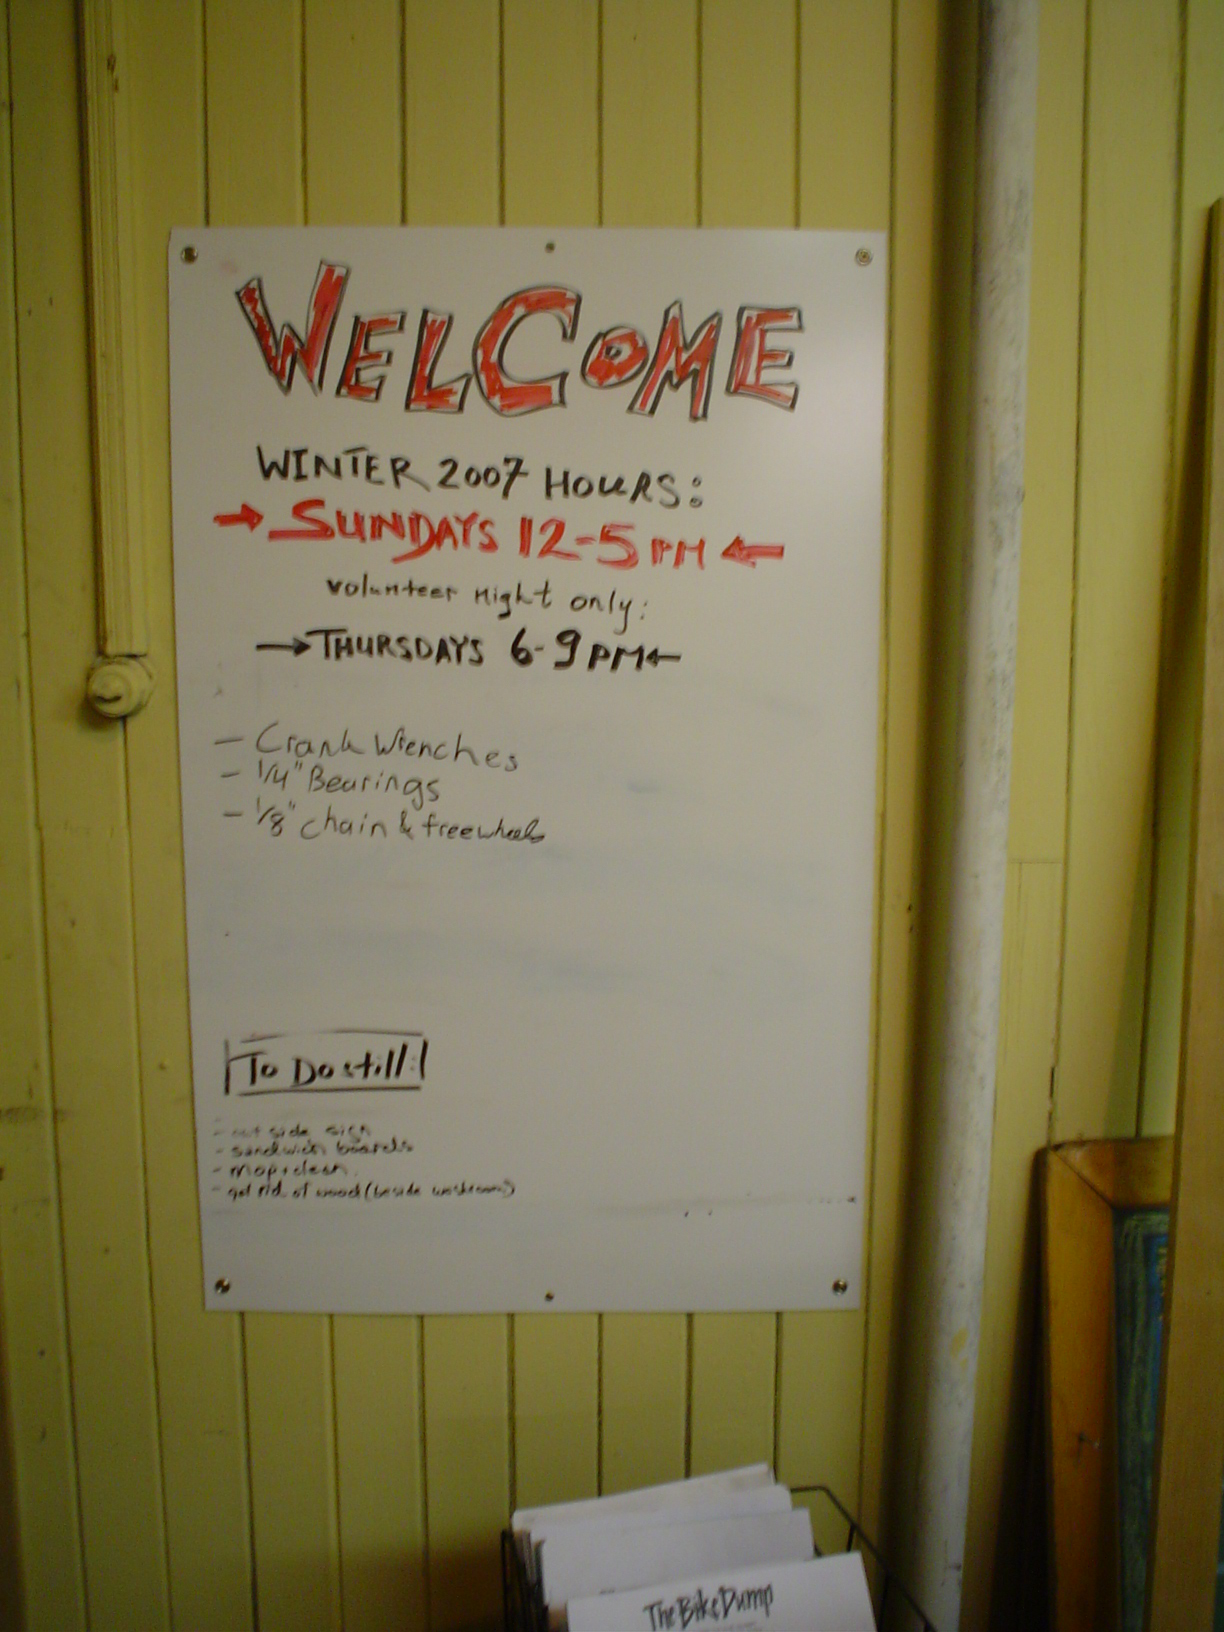 WELCOME
WINTER 2007 HOURS:
→ SUNDAYS 12-5 PM ←
volunteer night only:
→ THURSDAYS 6-9 PM ←
- Crank Wrenches
- 1/4" Bearings
- 1/8" chain & freewheels
To Do still!
- out side sign
- sandwich boards
- mop + clean
- get rid of wood (beside washroom)
The Bike Dump